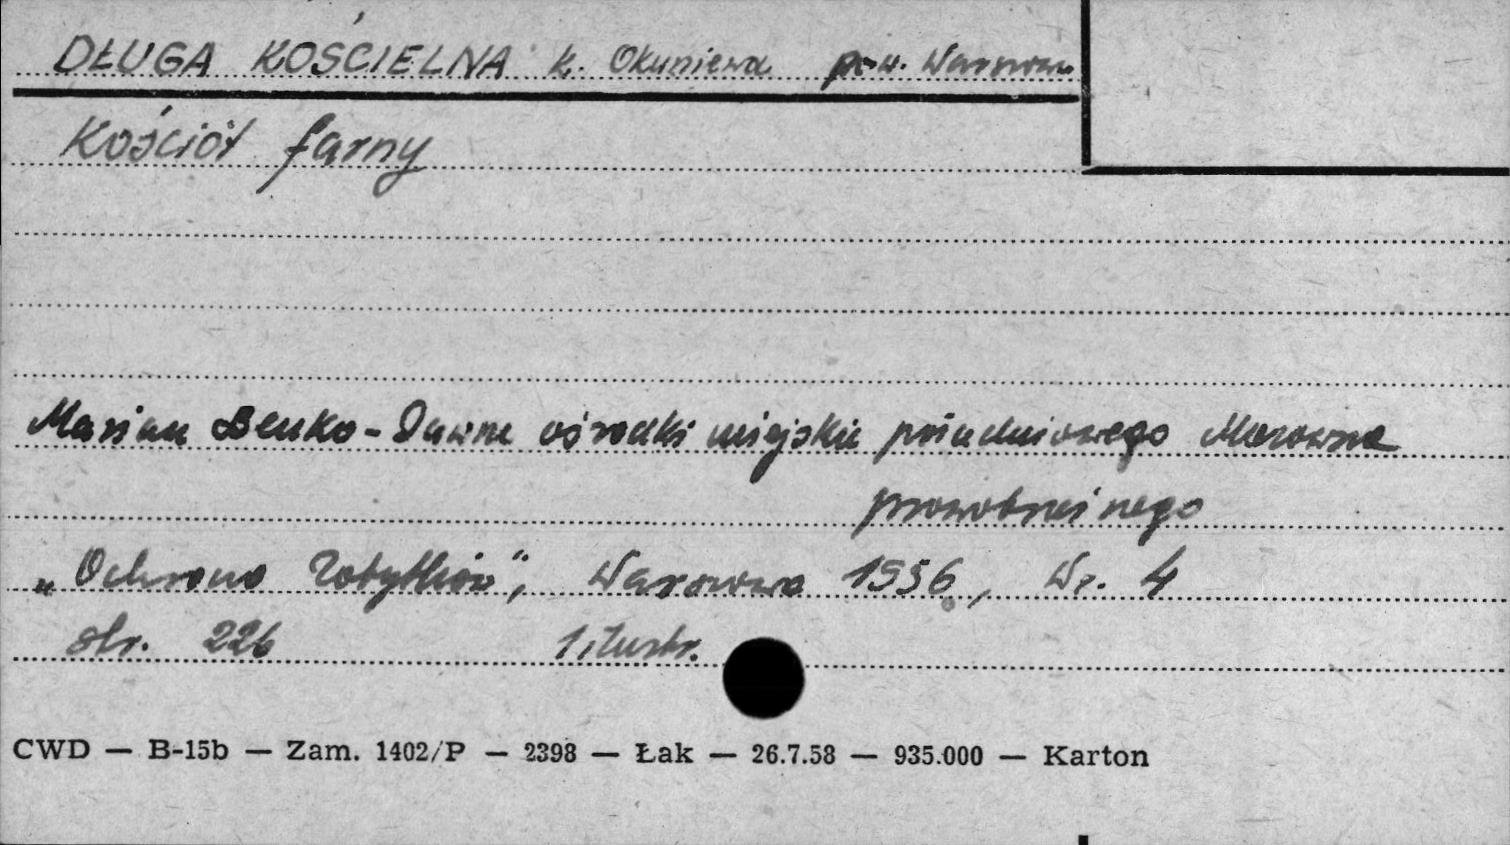 DŁUGA KOŚCIELNA k. Okuniewa pow. Warszawa
Kościół farny
Marian Benko - Dawne ośrodki miejskie południowego Mazowsza
prawobrzeżnego
„Ochrona Zabytków", Warszawa 1956, Nr. 4
str. 226 1 ilustr.
CWD — B-15b — Zam. 1402/P — 2398 — Łak — 26.7.58 — 935.000 — Karton